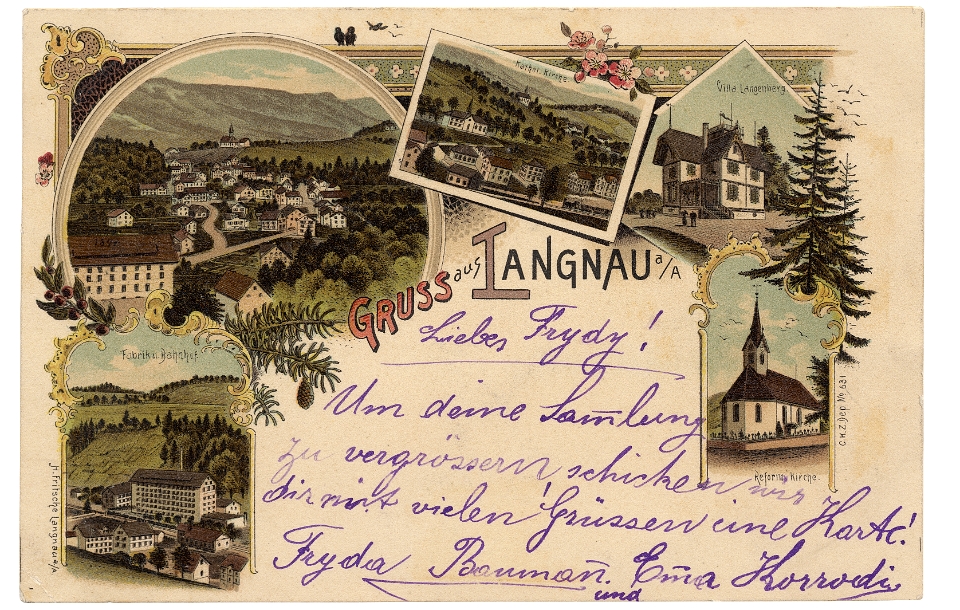 Kathol. Kirche
Villa Langenberg
Gruss aus Langnau a/A
Fabrik u. Bahnhof
Reform. Kirche.
C.H.Z. Dep. No. 631
H. Fritsche Langnau a/A
Liebes Frydy!
Um deine Sam̄lung
zu vergrössern schicken wir
dir mit vielen Grüssen eine Karte!
Fryda Bauman̄. und Em̄a Korrodi